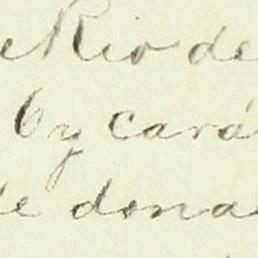 Rio de
by cará
de dona